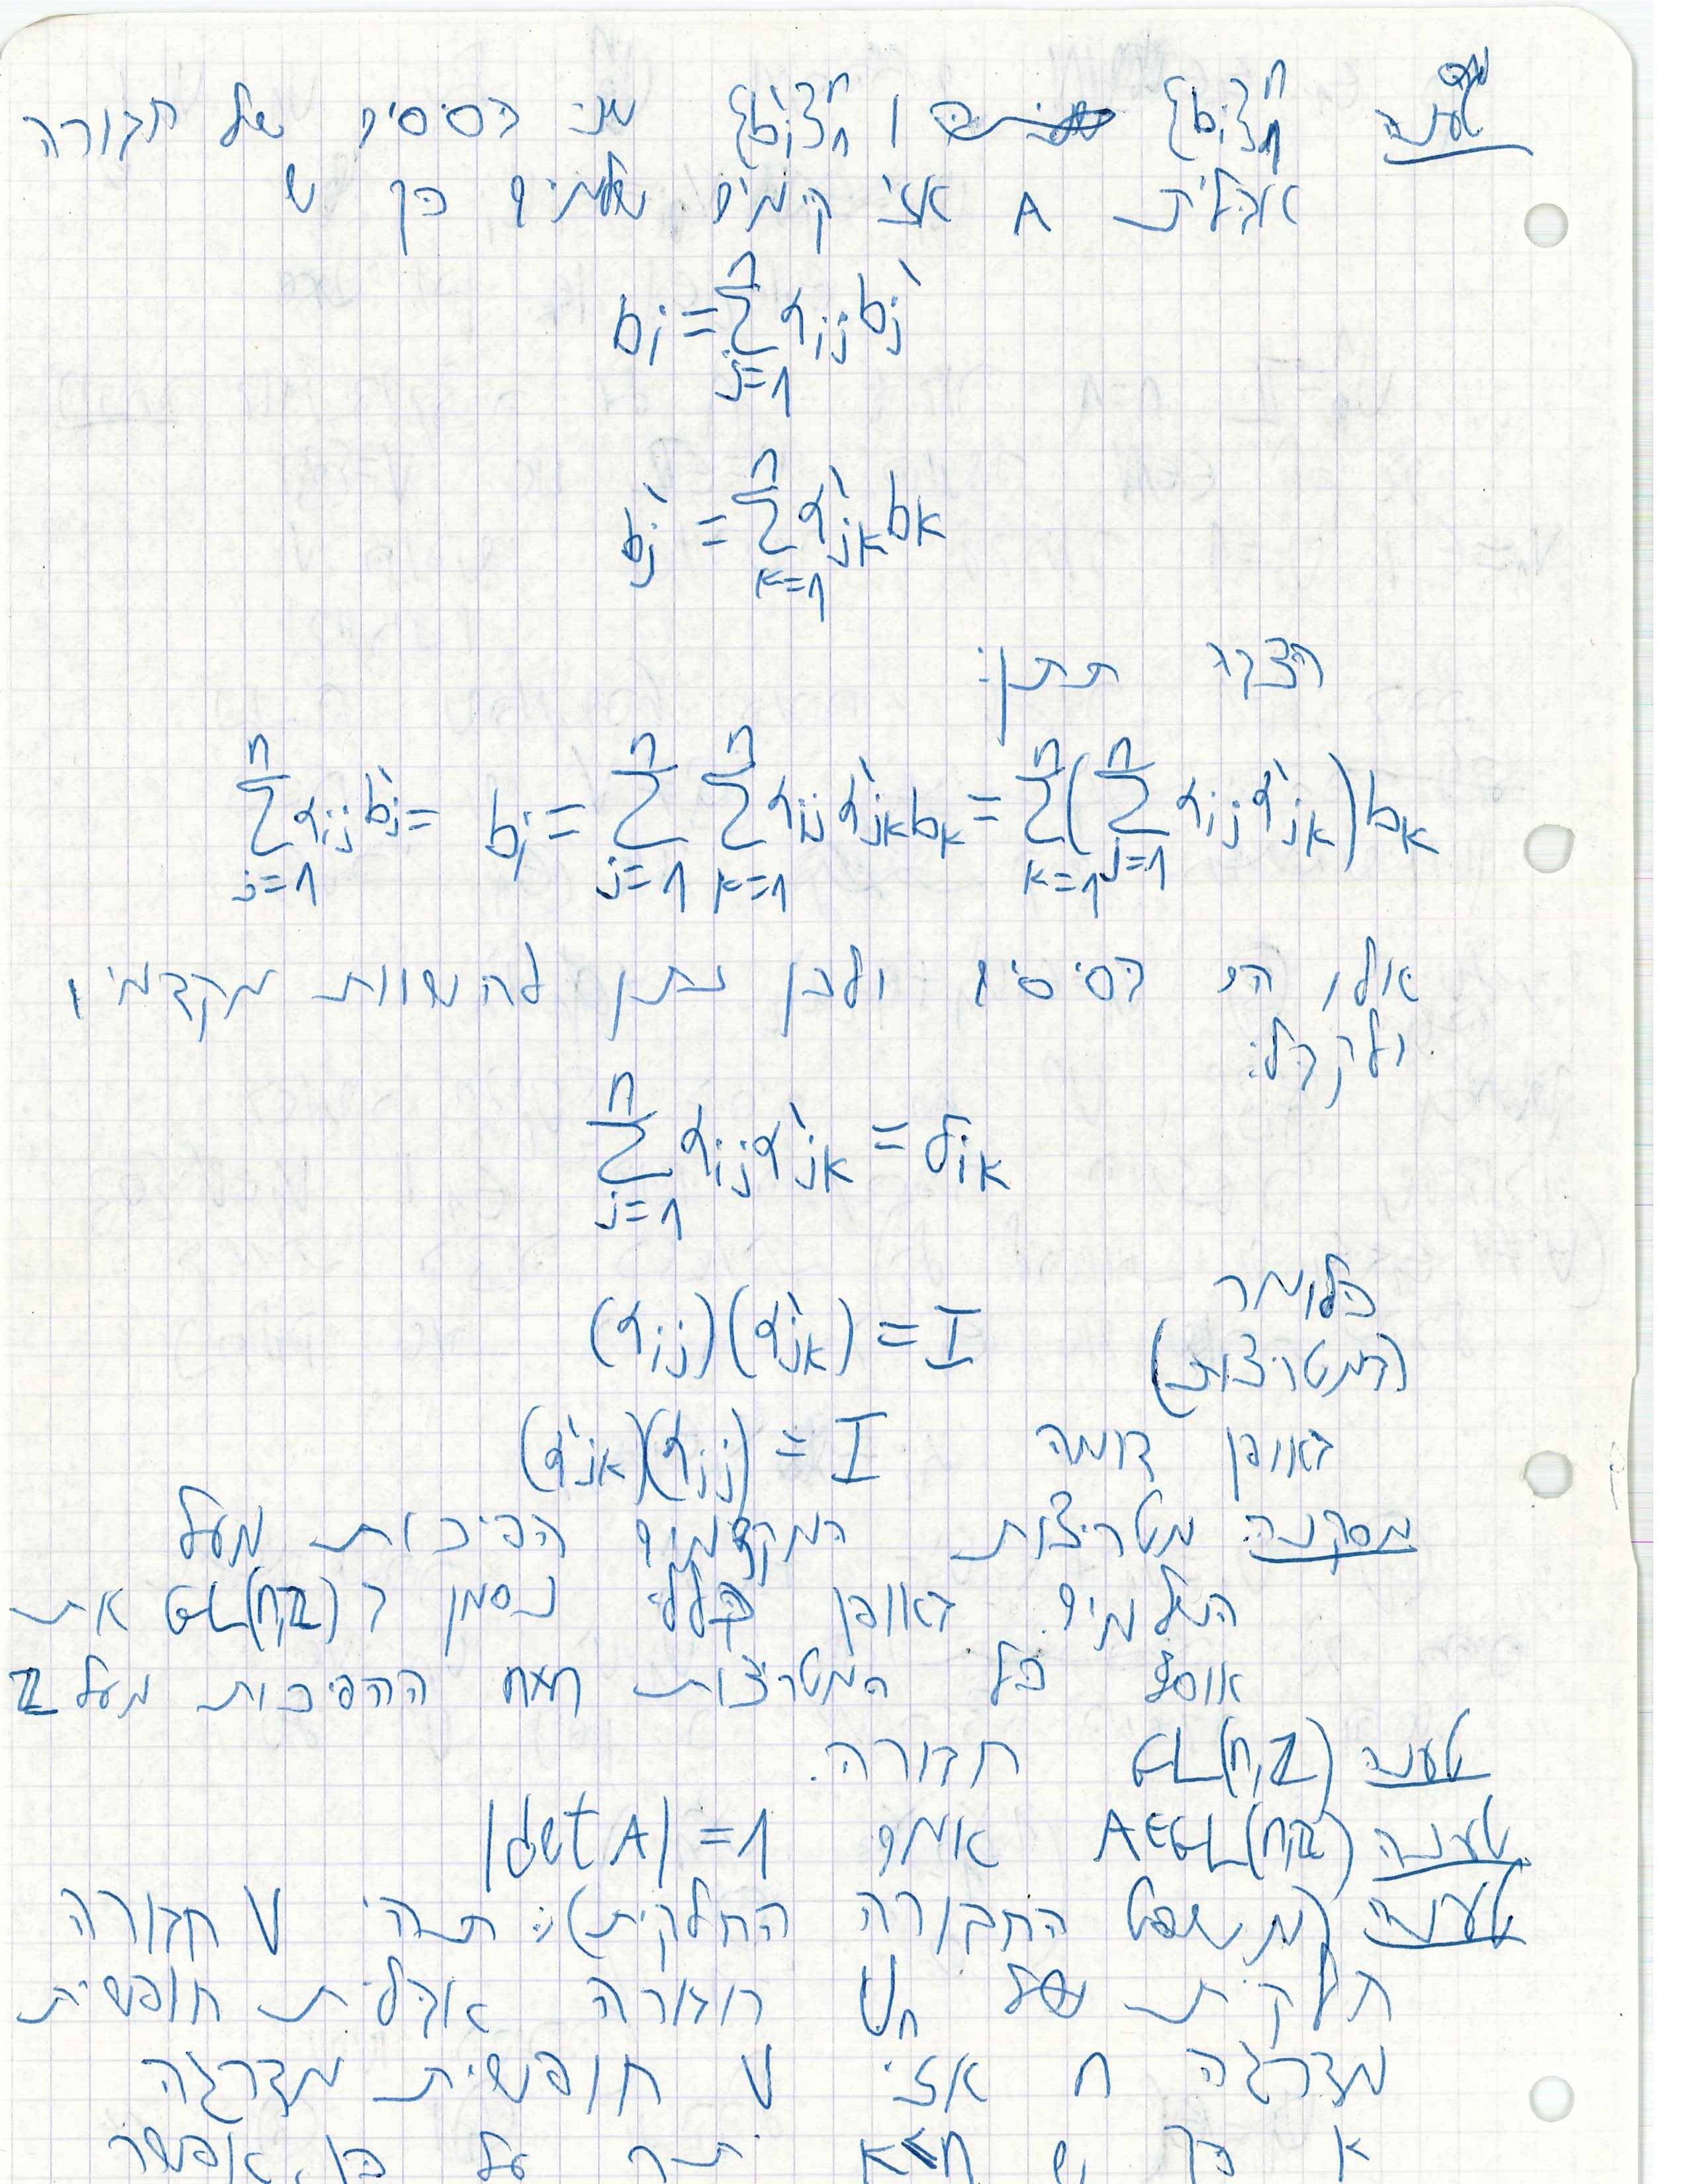 טענה {b_i}_1^n ו {b'_i}_1^n שני בסיסים של חבורה
אבלית A אזי קיימים שלמים כך ש
b_i = \sum_{j=1}^{n} a_{ij} b'_j
b'_j = \sum_{k=1}^{n} a'_{jk} b_k
הצבה תתן:
\sum_{j=1}^{n} a_{ij} b'_j = b_i = \sum_{j=1}^{n} \sum_{k=1}^{n} a_{ij} a'_{jk} b_k = \sum_{k=1}^{n} ( \sum_{j=1}^{n} a_{ij} a'_{jk} ) b_k
אלו הם בסיסים ולכן נתן להשוות מקדמים
ולקבל:
\sum_{j=1}^{n} a_{ij} a'_{jk} = δ_{ik}
כלומר
(a_{ij})(a'_{jk}) = I (המטריצות)
באופן דומה (a'_{jk})(a_{ij}) = I
מסקנה: מטריצות המקדמים הפיכות מעל
השלמים. באופן כללי נסמן ב GL(n,Z) את
אוסף כל המטריצות n×n ההפיכות מעל Z
טענה GL(n,Z) חבורה.
טענה A∈GL(n,Z) אמם |det A| = 1
טענה (משפט החבורה החלקית): תהי V חבורה
חלקית של U_n חבורה אבלית חופשית
מדרגה n אזי V חופשית מדרגה
k כך ש k≤n יתר על כן, אפשר